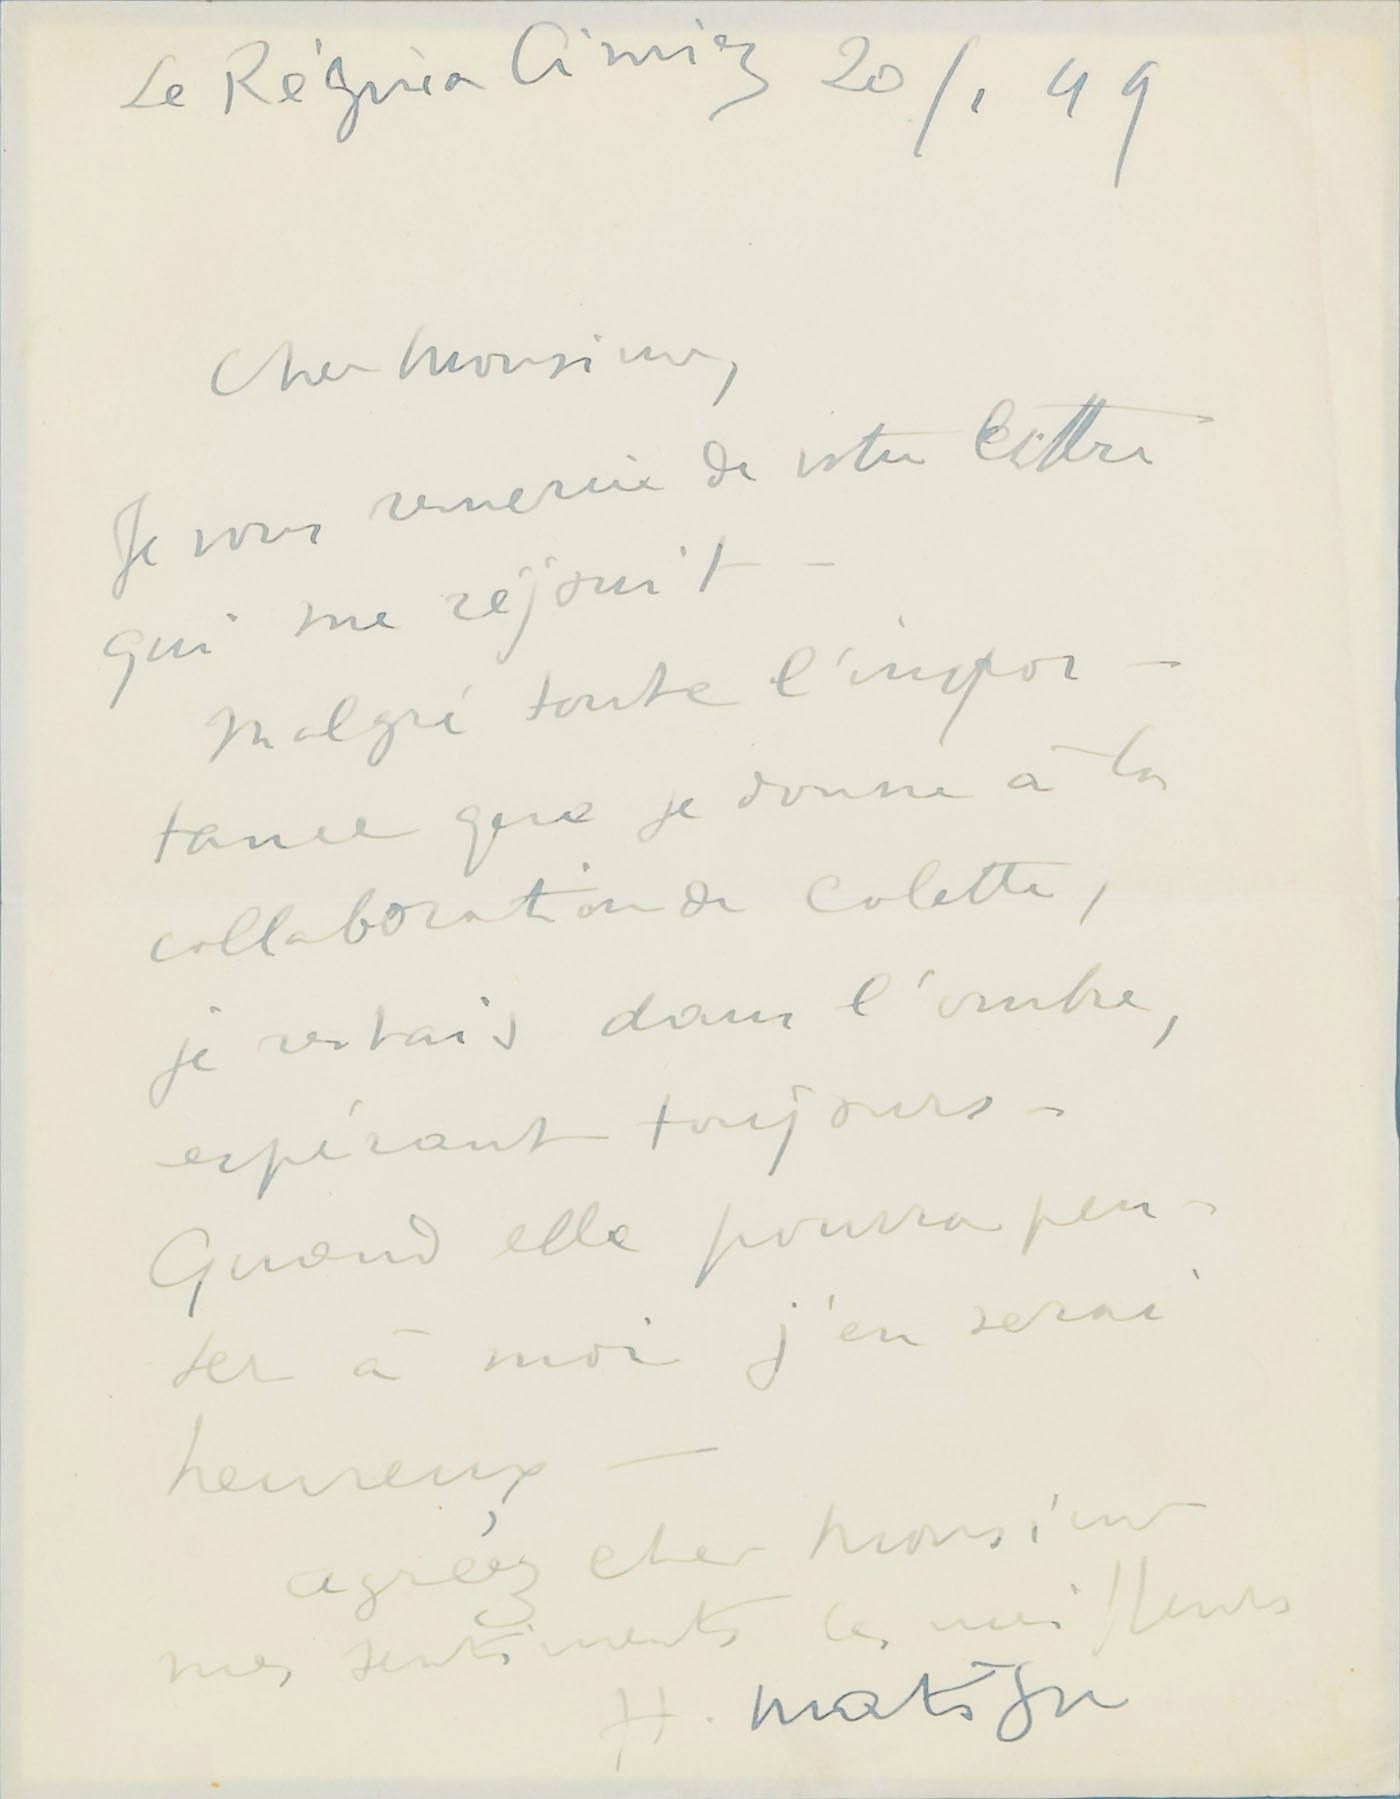 Le Régina Cimiez 20/1 49
Cher Monsieur,
Je vous remercie de votre lettre
qui me réjouit -
Malgré toute l'impor-
tance que je donne à la
collaboration de Colette,
je restais dans l'ombre,
espérant toujours -
Quand elle pourra pen-
ser à moi j'en serai
heureux -
agréez cher Monsieur
mes sentiments les meilleurs
H. Matisse